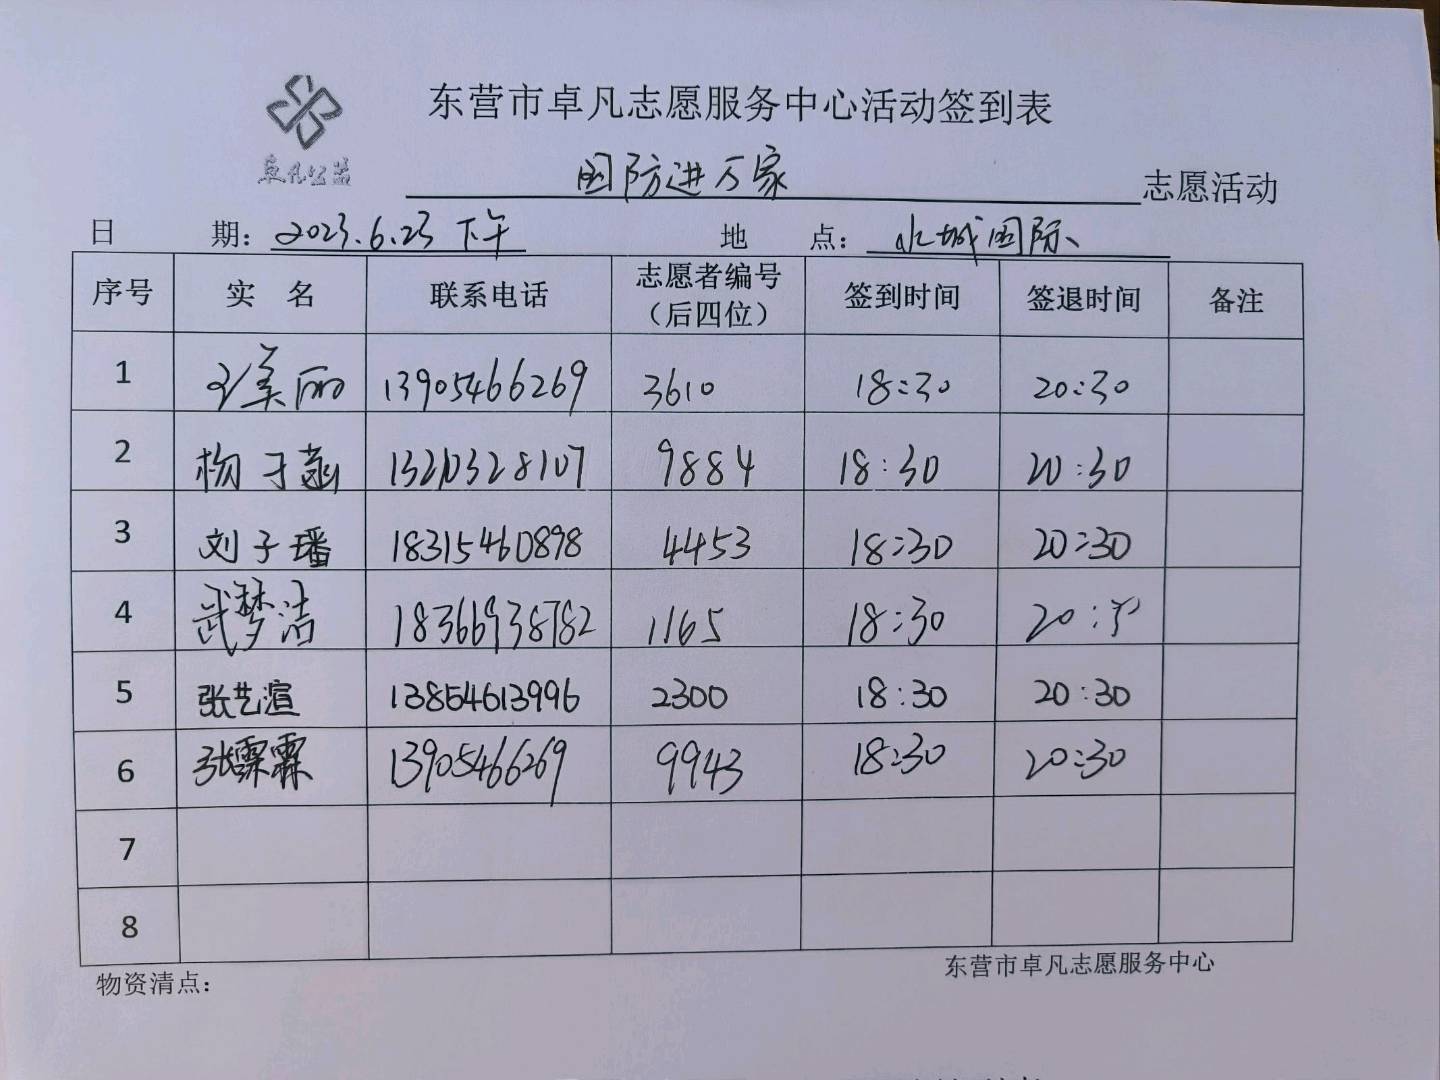 东营市卓凡志愿服务中心活动签到表
卓凡公益
国防进万家 志愿活动
日 期：2023.6.23 下午 地 点：水城国际
序号 实 名 联系电话 志愿者编号（后四位） 签到时间 签退时间 备注
1 王美丽 13905466269 3610 18:30 20:30
2 杨子菡 13210328107 9884 18:30 20:30
3 刘子璠 18315460898 4453 18:30 20:30
4 武梦洁 18366938782 1165 18:30 20:30
5 张艺渲 13854613996 2300 18:30 20:30
6 张霖霖 13905466269 9943 18:30 20:30
7
8
物资清点： 东营市卓凡志愿服务中心